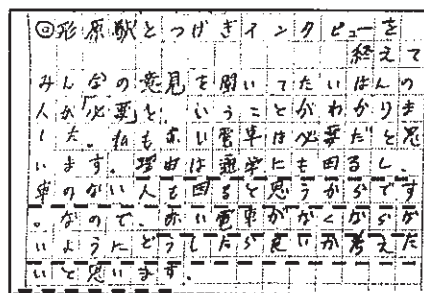 ◎形原駅とつげきインタビューを
終えて
みんなの意見を聞いてたいはんの
人が「必要と、いうことがわかりま
した。私も赤い電車は必要だと思
います。理由は通学にも困るし、
車のない人も困ると思うからです
。なので、赤い電車がなくならな
いようにどうしたら良いか考えた
いと思います。